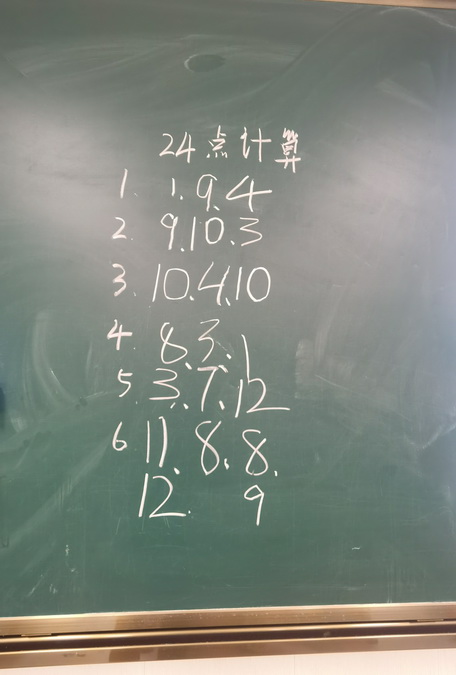 24点计算
1. 1. 9. 4
2. 9. 10. 3
3. 10. 4. 10
4. 8. 3. 1
5. 3. 7. 12
6. 11. 8. 8.
12. 9